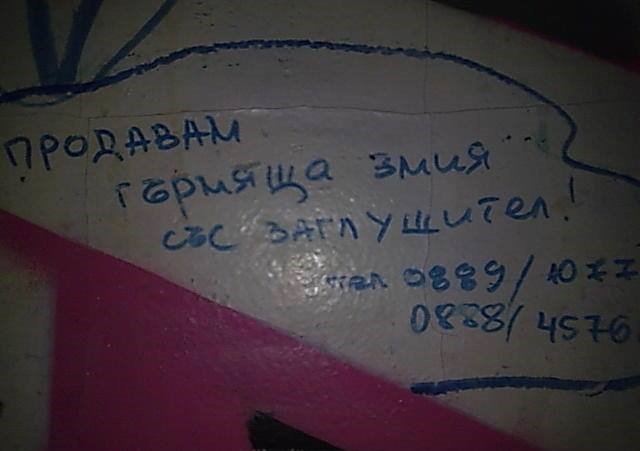 ПРОДАВАМ
гърмяща змия...
със заглушител!
тел 0889/1077
0888/4576